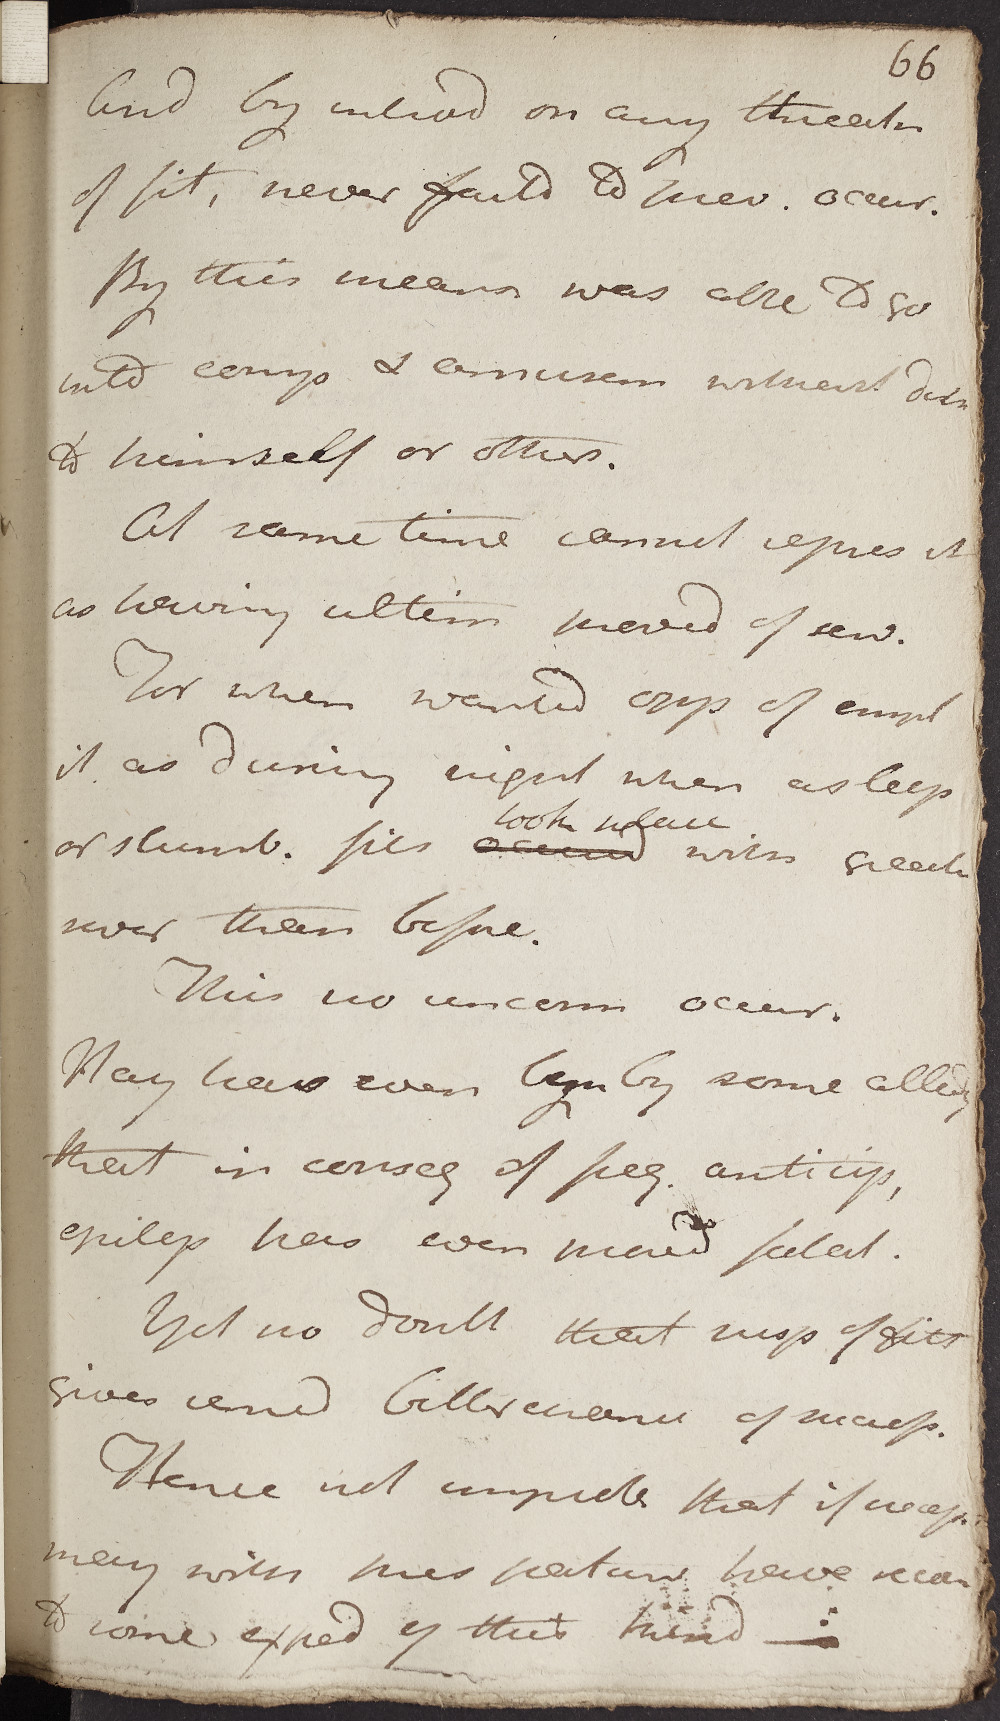 66
And by introd on any threatn
of fit, never fail'd to prev. occur.
By this means was able to go
into comp & amusem without distr
to himself or others.
At same time cannot repres it
as having ultim proved of serv.
For when wanted opp of empl
it as during night when asleep
took place
or slumb. fits occurred with greatr
sever than before.
This no uncom occur.
Nay has even by some alledg
that in conseq of freq. anticip,
epilep has even proved fatal.
Yet no doubt that susp of fits
gives remed better chance of success.
Hence not improb that if
may with pres patient have recou
to some exped of this kind —